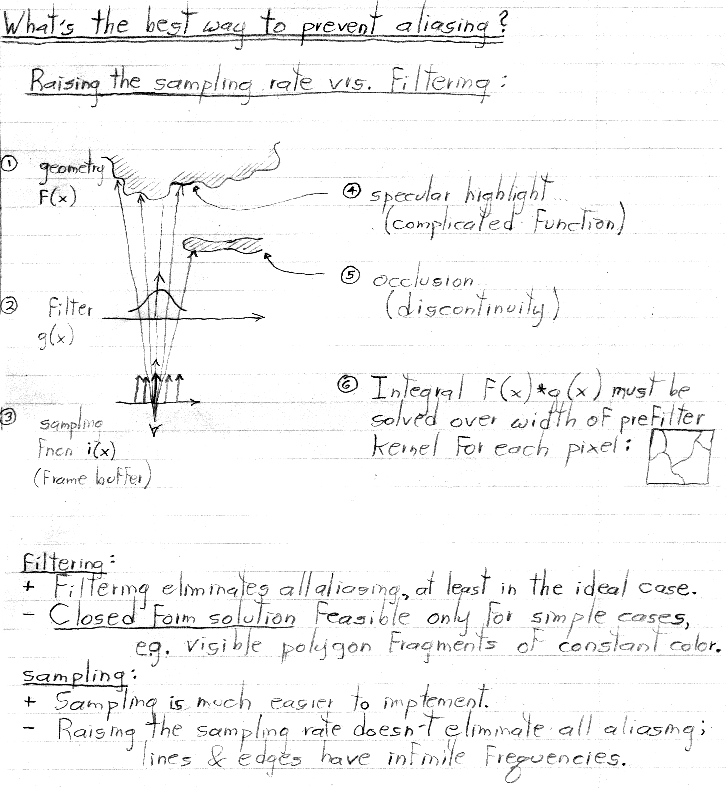 What's the best way to prevent aliasing?
Raising the sampling rate vrs. Filtering:
① geometry
F(x)
④ specular highlight
(complicated Function)
⑤ occlusion
(discontinuity)
② Filter
g(x)
⑥ Integral F(x)*g(x) must be
solved over width of preFilter
kernel For each pixel:
③ sampling
Fncn i(x)
(Frame buffer)
Filtering:
+ Filtering eliminates all aliasing, at least in the ideal case.
- Closed Form solution Feasible only for simple cases,
eg. visible polygon Fragments of constant color.
Sampling:
+ Sampling is much easier to implement.
- Raising the sampling rate doesn't eliminate all aliasing;
lines & edges have infinite Frequencies.